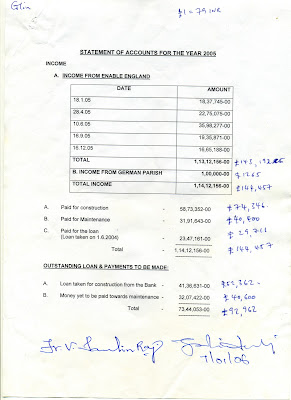 £1 = 79 INR
STATEMENT OF ACCOUNTS FOR THE YEAR 2005
INCOME
A. INCOME FROM ENABLE ENGLAND
DATE AMOUNT
18.1.05 18,37,745-00
28.4.05 22,75,075-00
10.6.05 35,98,277-00
16.9.05 19,35,871-00
15.12.05 16,65,188-00
TOTAL 1,13,12,156-00
B. INCOME FROM GERMAN PARISH 1,00,000-00 £1265
TOTAL INCOME 1,14,12,156-00 £144,457
A. Paid for construction - 58,73,352-00 £74,346
B. Paid for Maintenance - 31,91,643-00 £40,400
C. Paid for the loan
(Loan taken on 1.6.2004) - 23,47,161-00 £29,711
Total - 1,14,12,156-00 £144,457
OUTSTANDING LOAN & PAYMENTS TO BE MADE:
A. Loan taken for construction from the Bank - 41,36,631-00 £52,362
B. Money yet to be paid towards maintenance - 32,07,422-00 £40,600
Total - 73,44,053-00 £92,962
Fr V.
7/01/06